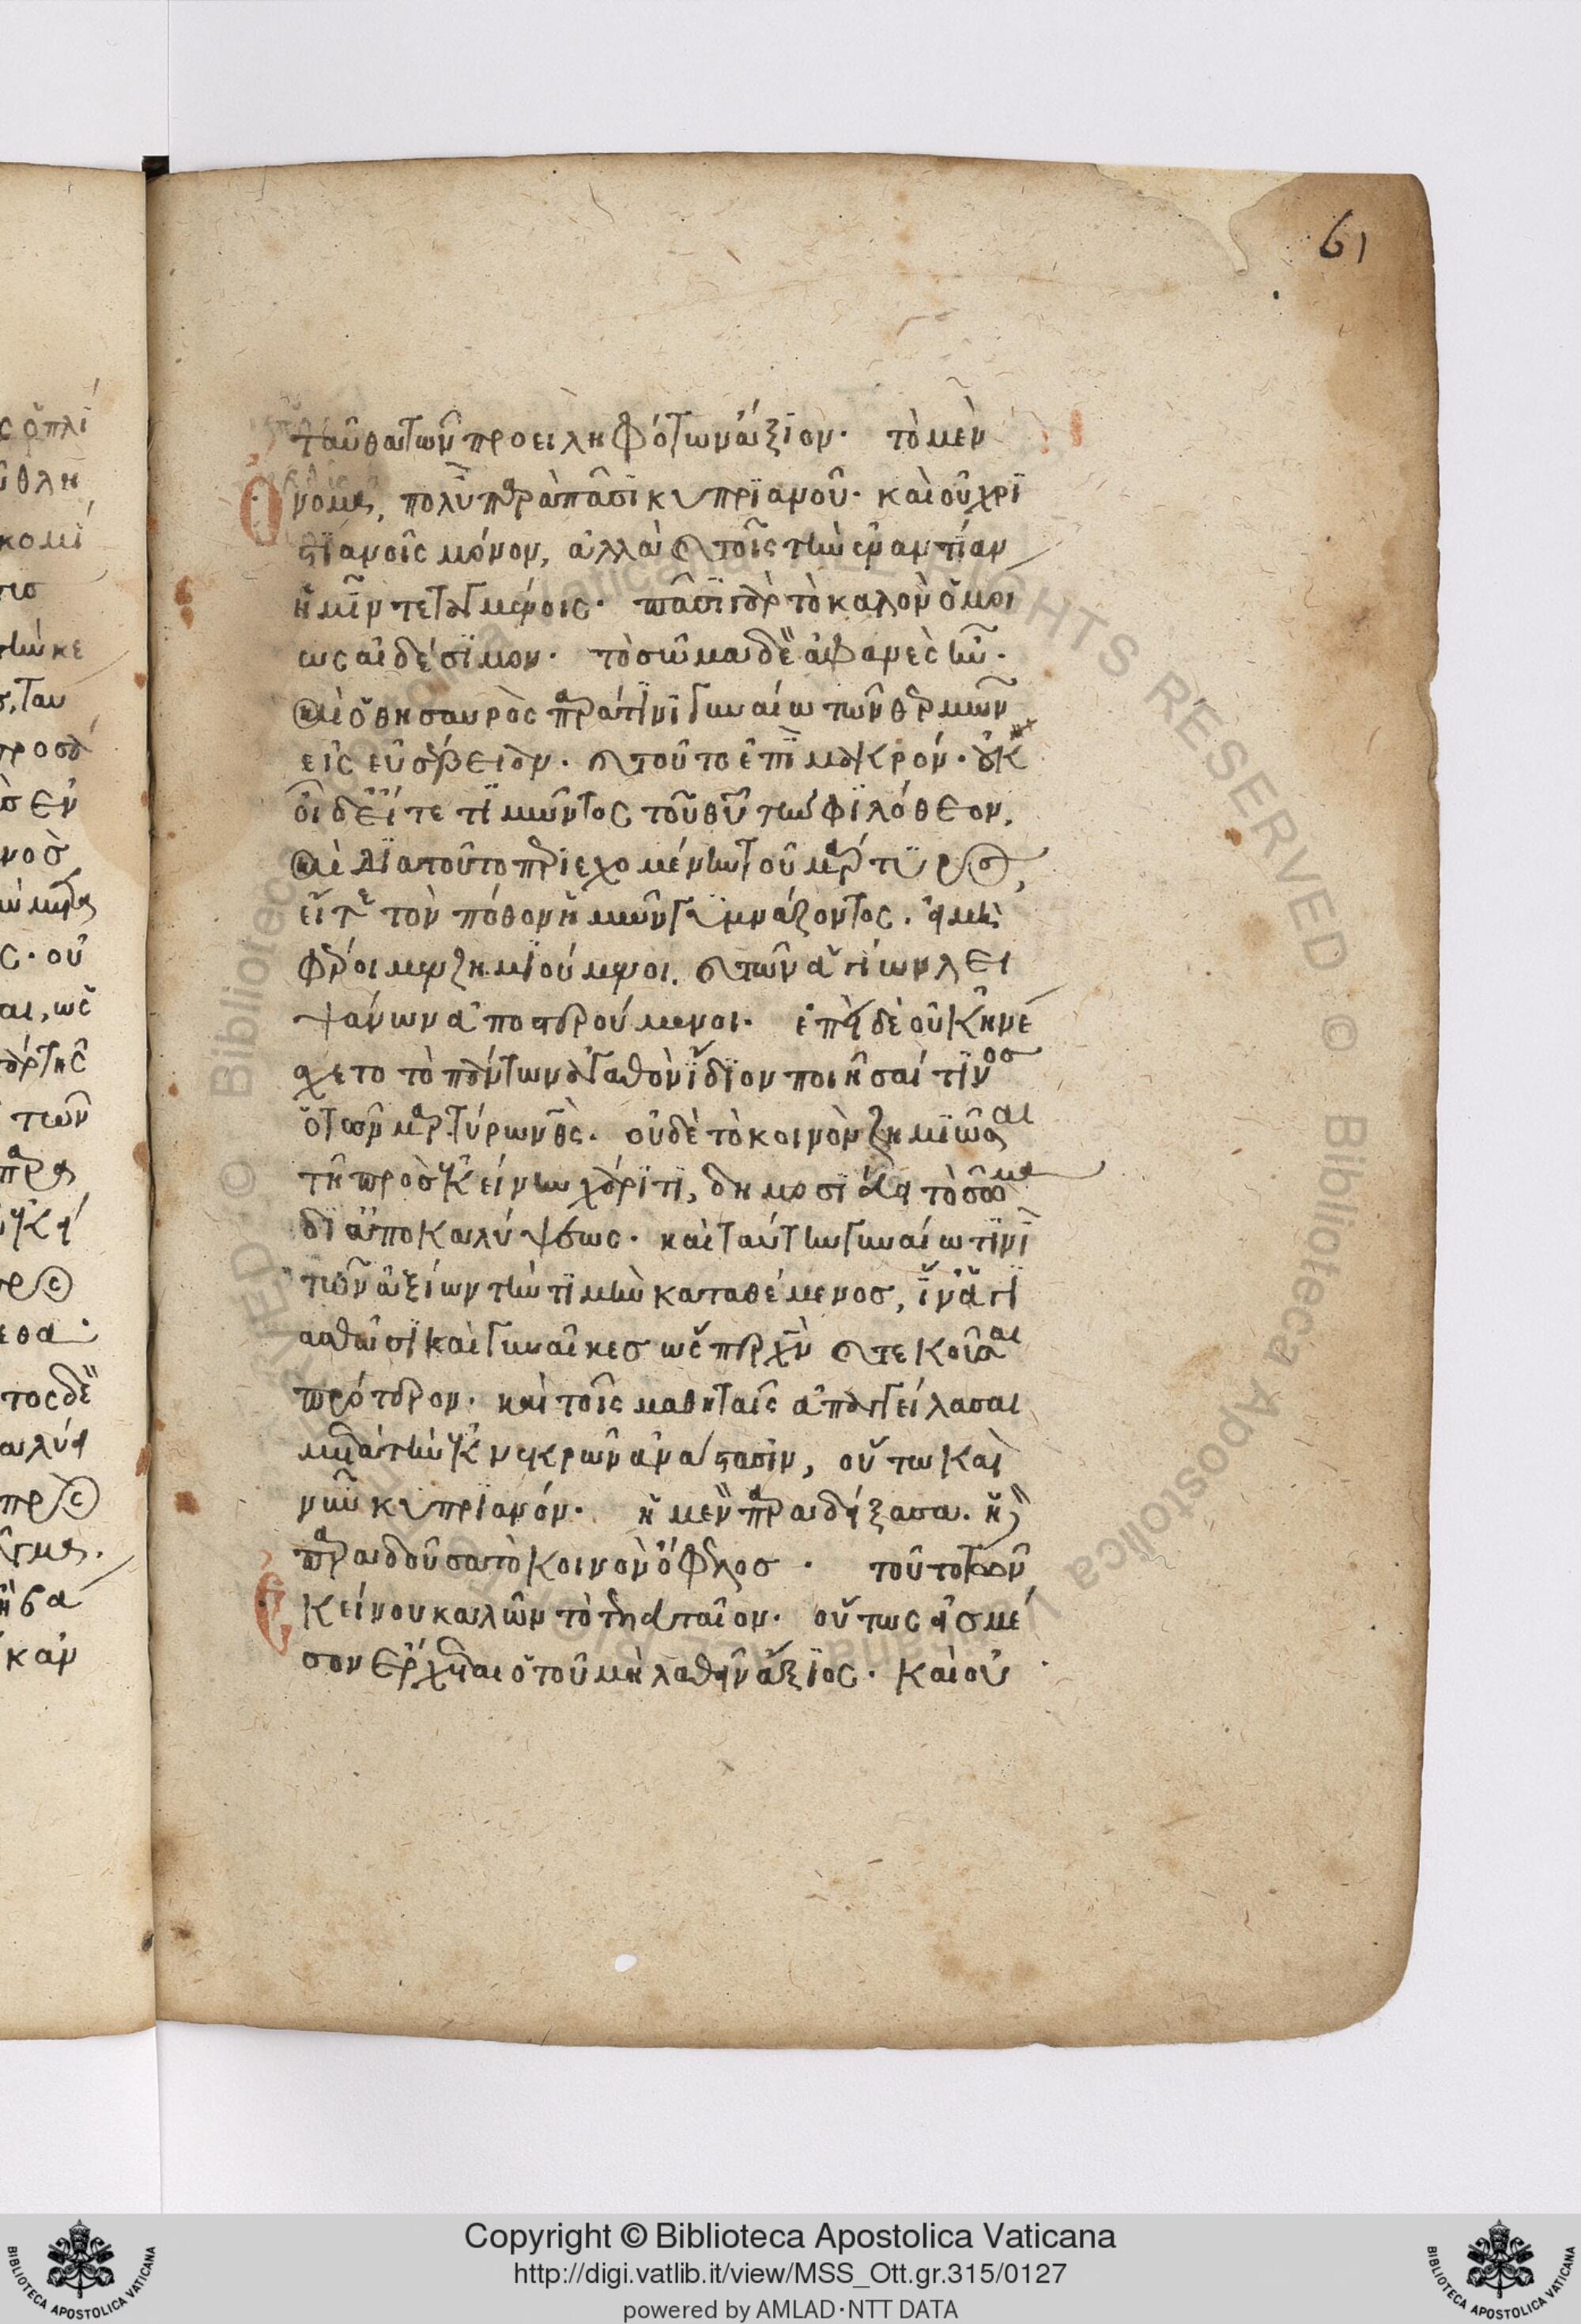 61
ταῦθα τῶν προειληφότων ἄξιον· τὸ μὲν
ὄνομα, πολὺ παρὰ πᾶσι κυπριανοῦ· καὶ οὐ χρι
στιανοῖς μόνον, ἀλλὰ καὶ τοῖς τὴν ἐναντίαν
ἡμῖν τεταγμένοις· πᾶσι γὰρ τὸ καλὸν ὁμοί
ως αἰδέσιμον· τὸ σῶμα δὲ ἀφανὲς ἦν·
καὶ ὁ θησαυρὸς παρά τινι γυναίῳ τῶν θερμῶν
εἰς εὐσέβειαν· καὶ τοῦτο ἐπὶ μακρόν· οὐκ
οἶδ' εἴτε τιμῶντος τοῦ θυ τὴν φιλόθεον,
καὶ διατοῦτο περιεχομένην τοῦ μάρτυρος,
εἴτε τὸν πόθον ἡμῶν γυμνάζοντος. εἰ μὴ
φέροιμεν ζημιούμενοι. καὶ τῶν ἁγίων λει
ψάνων ἀποστερούμενοι· ἐπεὶ δὲ οὐκ ἠνέ
σχετο τὸ πάντων ἀγαθὸν ἴδιον ποιῆσαί τινος
ὁ τῶν μαρτύρων θς· οὐδὲ τὸ κοινὸν ζημιῶσαι
τῇ πρὸς ἐκείνην χάριτι, δημοσιεύει τὸ σῶμα
δι' ἀποκαλύψεως· καὶ ταύτην γυναίῳ τινὶ
τῶν ἀξίων τὴν τιμὴν καταθέμενος, ἵν' ἁγι
ασθῶσι καὶ γυναῖκες ὥσπερ χν καὶ τεκοῦσαι
πρότερον· καὶ τοῖς μαθηταῖς ἀπαγγείλασαι
μετὰ τὴν ἐκ νεκρῶν ἀνάστασιν, οὕτω καὶ
νῦν κυπριανόν· ἡ μὲν παραδείξασα. ἡ δὲ
παραδοῦσα τὸ κοινὸν ὄφελος· τοῦτο τῶν
ἐκείνου καλῶν τὸ τελευταῖον· οὕτως εἰς μέ
σον ἔρχεται ὁ τοῦ μὴ λαθεῖν ἄξιος· καὶ οὐ
Copyright © Biblioteca Apostolica Vaticana
http://digi.vatlib.it/view/MSS_Ott.gr.315/0127
powered by AMLAD·NTT DATA